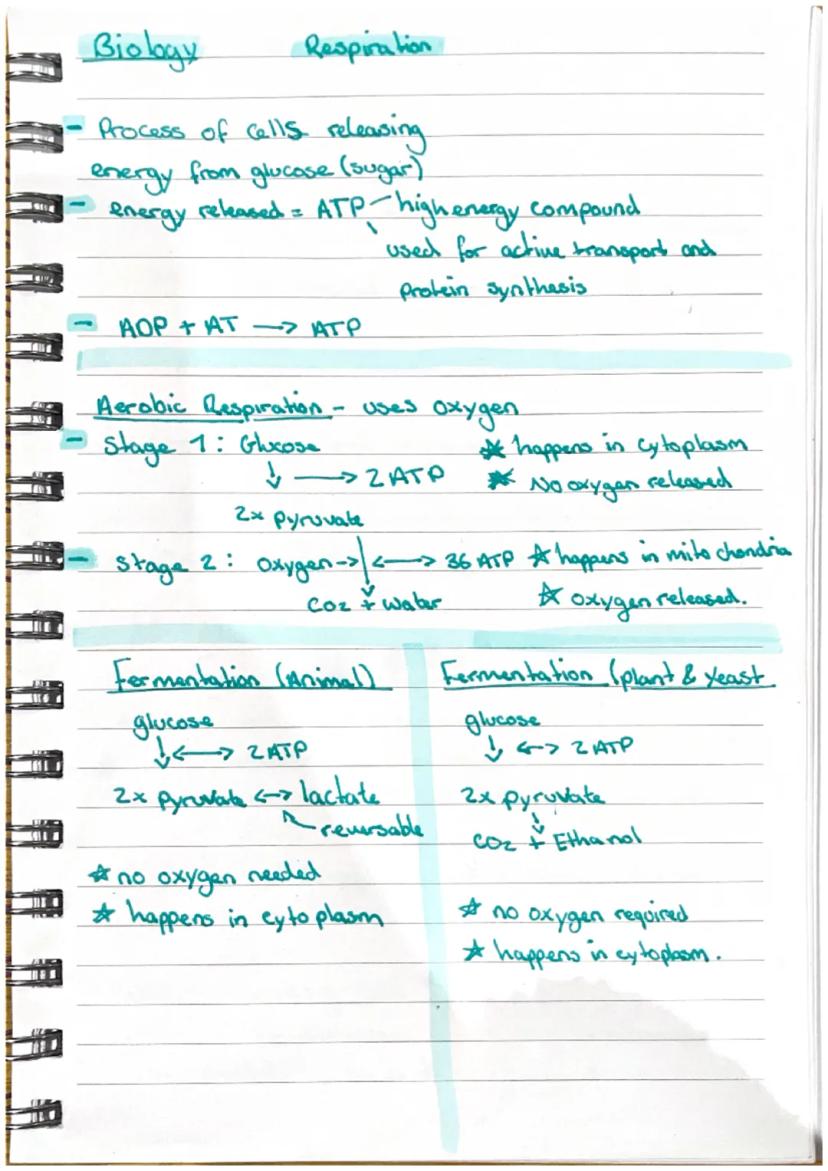 Biology Respiration
- Process of cells releasing
energy from glucose (sugar)
- energy released = ATP - high energy compound
used for active transport and
protein synthesis
- ADP + AT → ATP
Aerobic Respiration - uses oxygen
- Stage 1: Glucose ☆ happens in cytoplasm
↓ → 2 ATP ☆ No oxygen released
2x pyruvate
- Stage 2: oxygen → ↓ ↔ 36 ATP ☆ happens in mitochondria
CO2 + water ☆ oxygen released.
Fermentation (Animal)
glucose
↓ ↔ 2 ATP
2x pyruvate ↔ lactate
reversable
☆ no oxygen needed
☆ happens in cytoplasm
Fermentation (plant & yeast
glucose
↓ ↔ 2 ATP
2x pyruvate
↓
CO2 + Ethanol
☆ no oxygen required
☆ happens in cytoplasm.